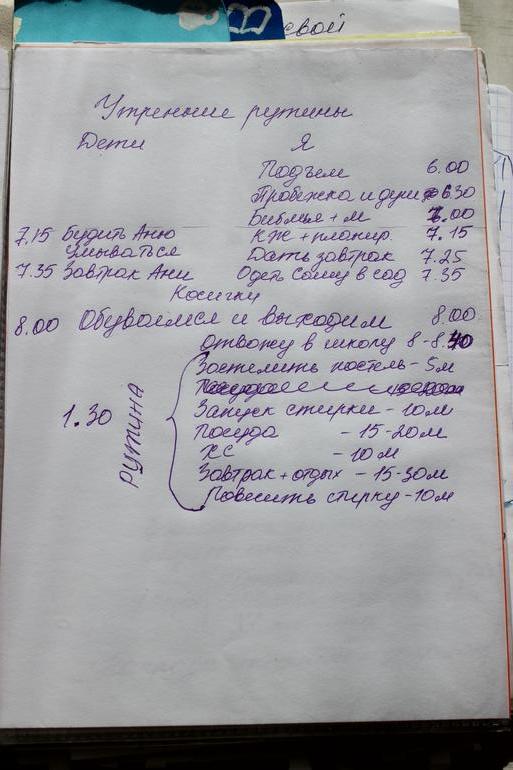 свой
Утренние рутины
Дети Я
Подъем 6.00
Пробежка и душ 6.30
Библия + м 7.00
7.15 Будить Аню КЖ + планир. 7.15
Умываться Дать завтрак 7.25
7.35 Завтрак Ани Одеть Сашу в сад 7.35
Косички
8.00 Обуваемся и выходим 8.00
отвожу в школу 8-8.40
Застелить постель - 5м
Запуск стирки - 10м
1.30 РУТИНА Посуда - 15-20м
ХС - 10м
Завтрак + отдых - 15-30м
Повесить стирку - 10м